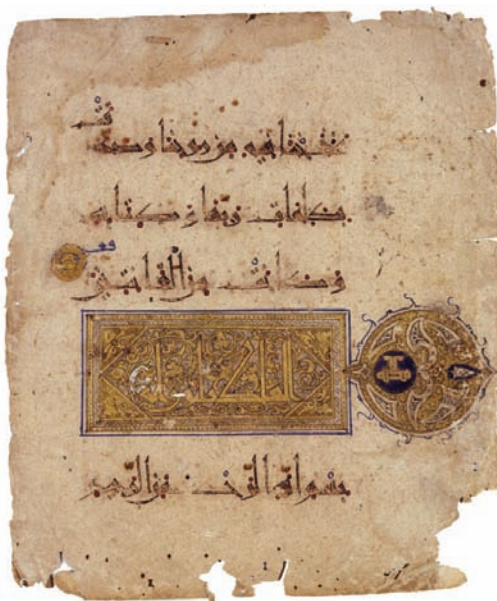 فنفخنا فيه من روحنا وصدقت
بكلمات ربها وكتابه
وكانت من القانتين
بسم الله الرحمن الرحيم